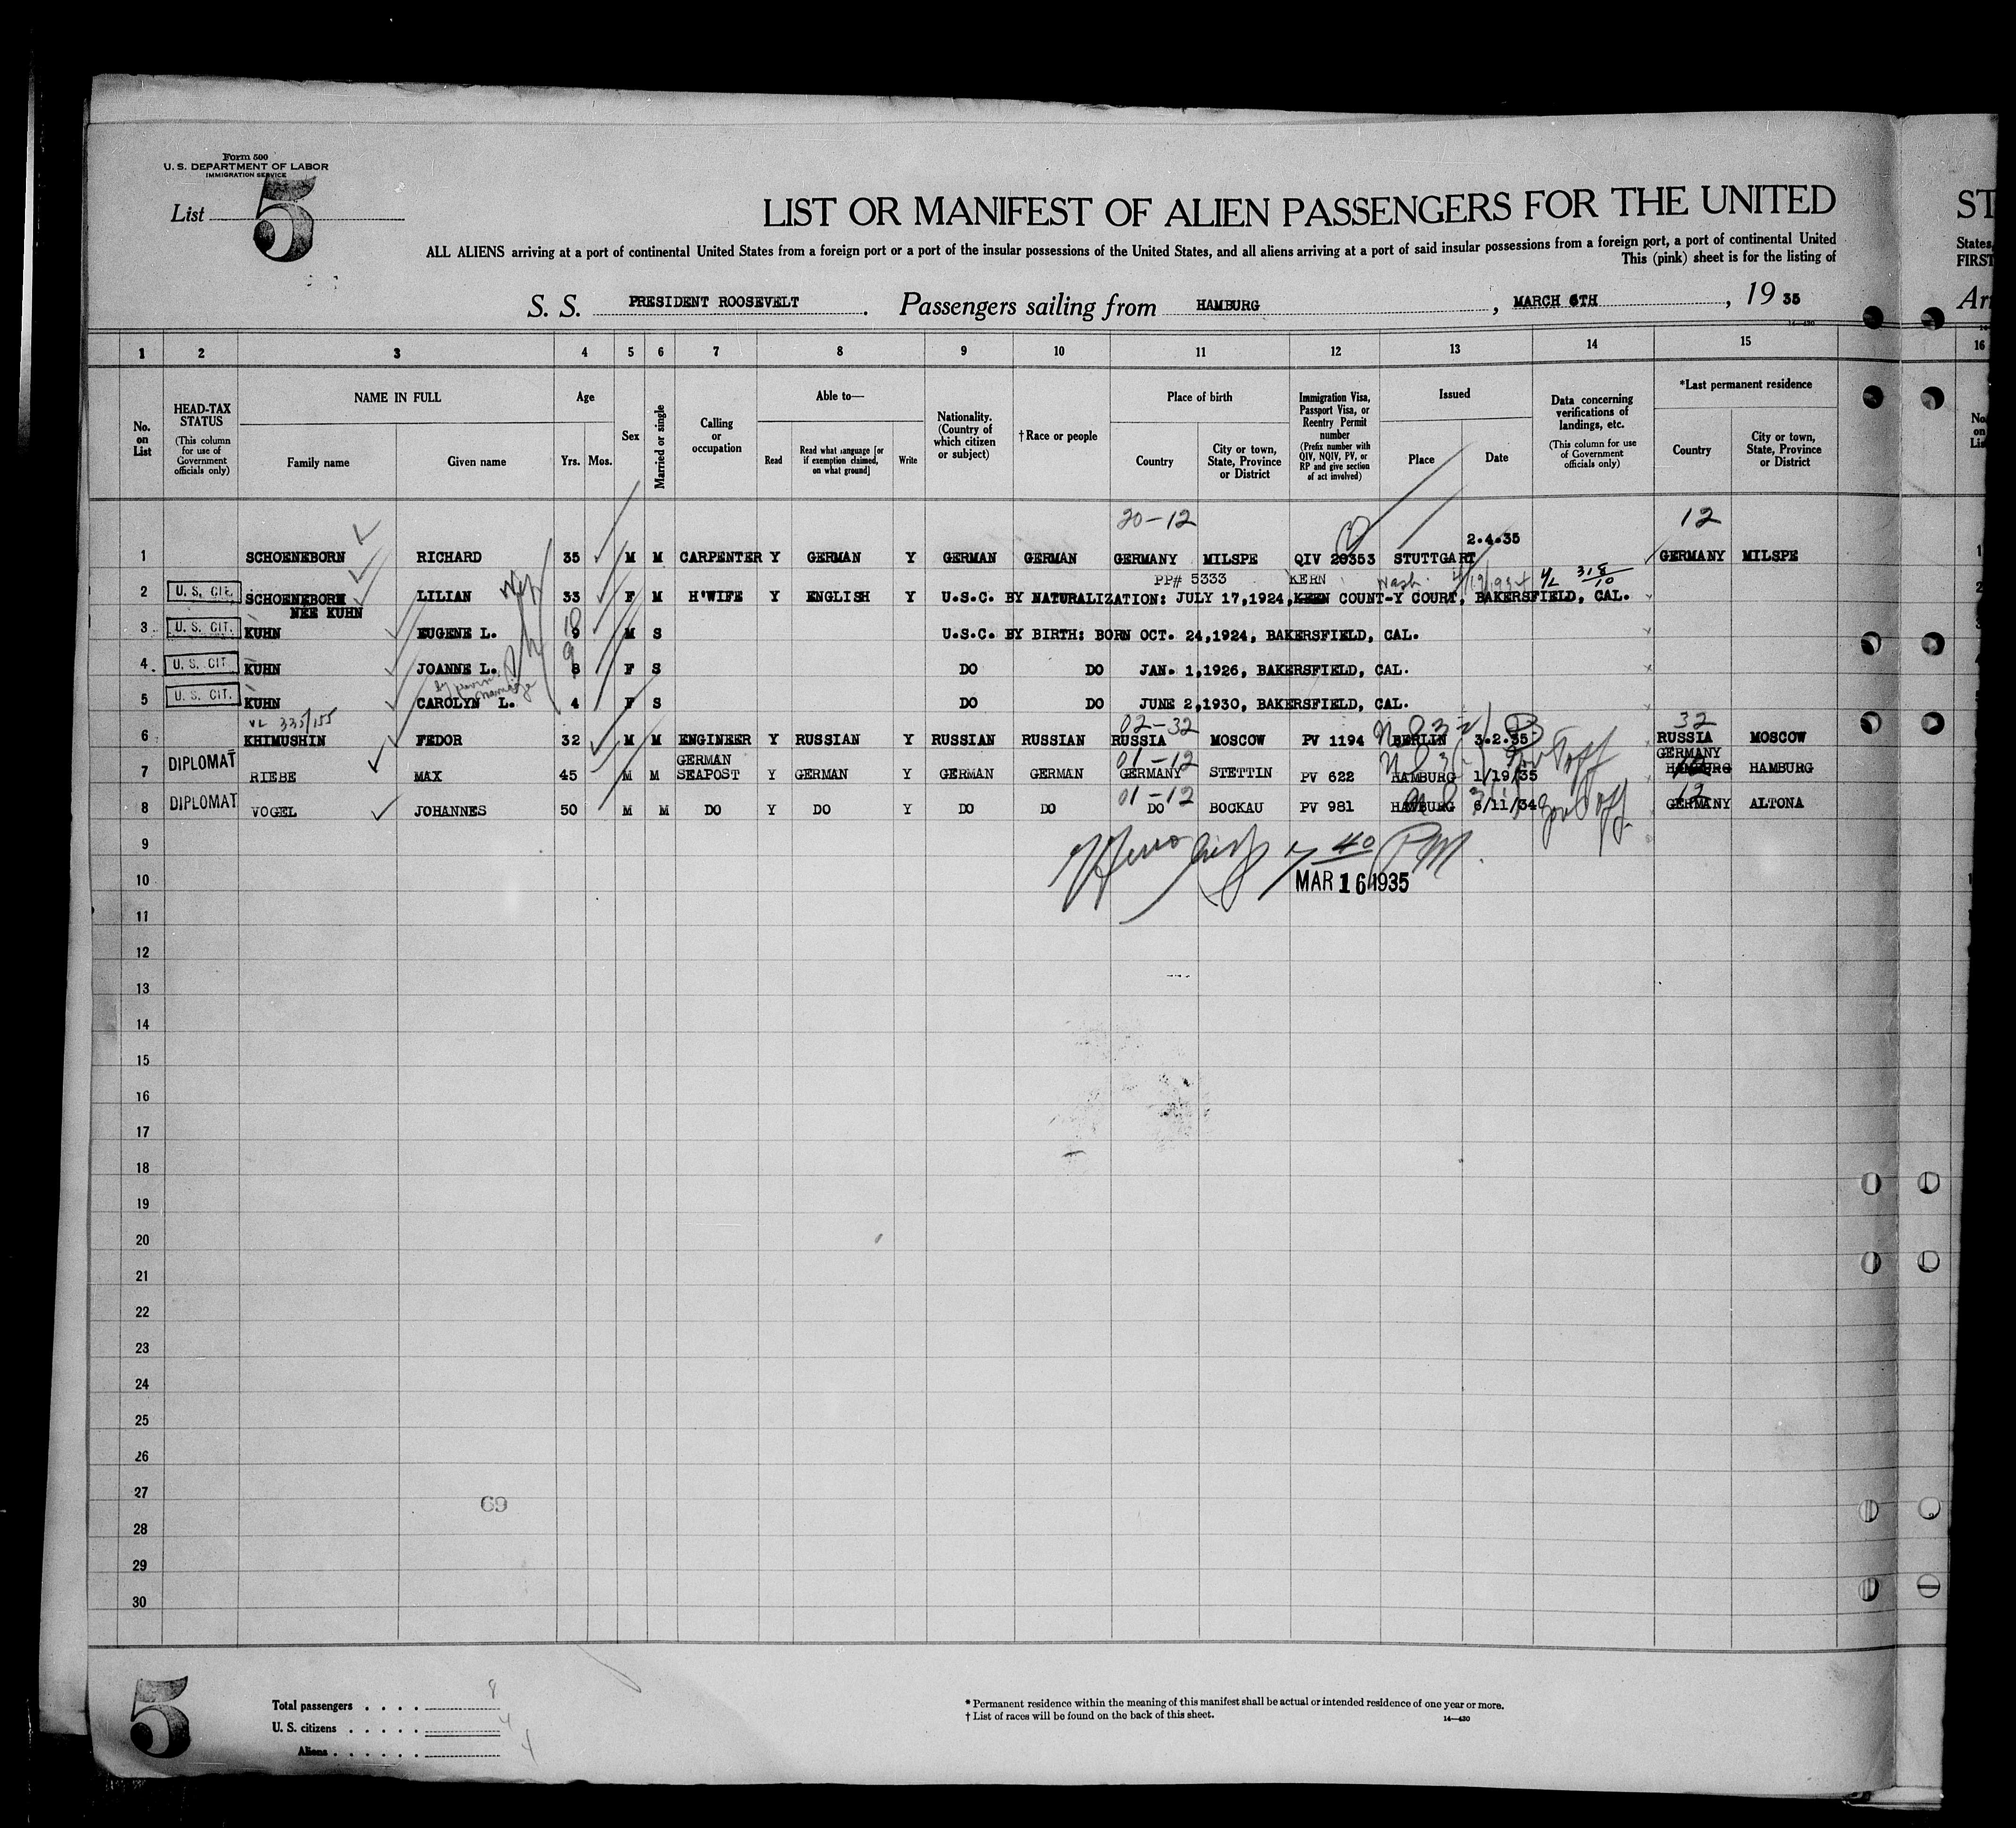 Form 500
U. S. DEPARTMENT OF LABOR
IMMIGRATION SERVICE
List 5
LIST OR MANIFEST OF ALIEN PASSENGERS FOR THE UNITED
ST
ALL ALIENS arriving at a port of continental United States from a foreign port or a port of the insular possessions of the United States, and all aliens arriving at a port of said insular possessions from a foreign port, a port of continental United
States,
This (pink) sheet is for the listing of
FIRST
S. S. PRESIDENT ROOSEVELT. Passengers sailing from HAMBURG, MARCH 6TH, 19 35
Arr
14—430
1 2 3 4 5 6 7 8 9 10 11 12 13 14 15 16
No. on List
HEAD-TAX STATUS (This column for use of Government officials only)
NAME IN FULL Family name Given name
Age Yrs. Mos.
Sex
Married or single
Calling or occupation
Able to— Read Read what language [or if exemption claimed, on what ground] Write
Nationality. (Country of which citizen or subject)
†Race or people
Place of birth Country City or town, State, Province or District
Immigration Visa, Passport Visa, or Reentry Permit number (Prefix number with QIV, NQIV, PV, or RP and give section of act involved)
Issued Place Date
Data concerning verifications of landings, etc. (This column for use of Government officials only)
*Last permanent residence Country City or town, State, Province or District
No. on List
20-12 12
2.4.35
1 SCHOENEBORN RICHARD 35 M M CARPENTER Y GERMAN Y GERMAN GERMAN GERMANY MILSPE QIV 29353 STUTTGART GERMANY MILSPE 1
PP# 5333 KERN Wash. 318/10
2 U. S. CIT. SCHOENEBORN LILIAN 33 F M H'WIFE Y ENGLISH Y U.S.C. BY NATURALIZATION: JULY 17,1924, KEEN COUNT-Y COURT, BAKERSFIELD, CAL. 2
NEE KUHN
10
3 U. S. CIT. KUHN EUGENE L. 9 M S U.S.C. BY BIRTH: BORN OCT. 24,1924, BAKERSFIELD, CAL.
9
4 U. S. CIT. KUHN JOANNE L. 8 F S DO DO JAN. 1,1926, BAKERSFIELD, CAL.
5 U. S. CIT. KUHN CAROLYN L. 4 F S DO DO JUNE 2,1930, BAKERSFIELD, CAL.
VL 335/155 02-32 32
6 KHIMUSHIN FEDOR 32 M M ENGINEER Y RUSSIAN Y RUSSIAN RUSSIAN RUSSIA MOSCOW PV 1194 BERLIN 3.2.35 RUSSIA MOSCOW
GERMAN 01-12 GERMANY
7 DIPLOMAT RIEBE MAX 45 M M SEAPOST Y GERMAN Y GERMAN GERMAN GERMANY STETTIN PV 622 HAMBURG 1/19/35 Gov't off HAMBURG HAMBURG
01-12 12
8 DIPLOMAT VOGEL JOHANNES 50 M M DO Y DO Y DO DO DO BOCKAU PV 981 HAMBURG 6/11/34 Gov't off. GERMANY ALTONA
9
7 40 PM
10
MAR 16 1935
11
12
13
14
15
16
17
18
19
20
21
22
23
24
25
26
27
69
28
29
30
5
Total passengers 8
U. S. citizens 4
Aliens 4
* Permanent residence within the meaning of this manifest shall be actual or intended residence of one year or more.
† List of races will be found on the back of this sheet.
14—430